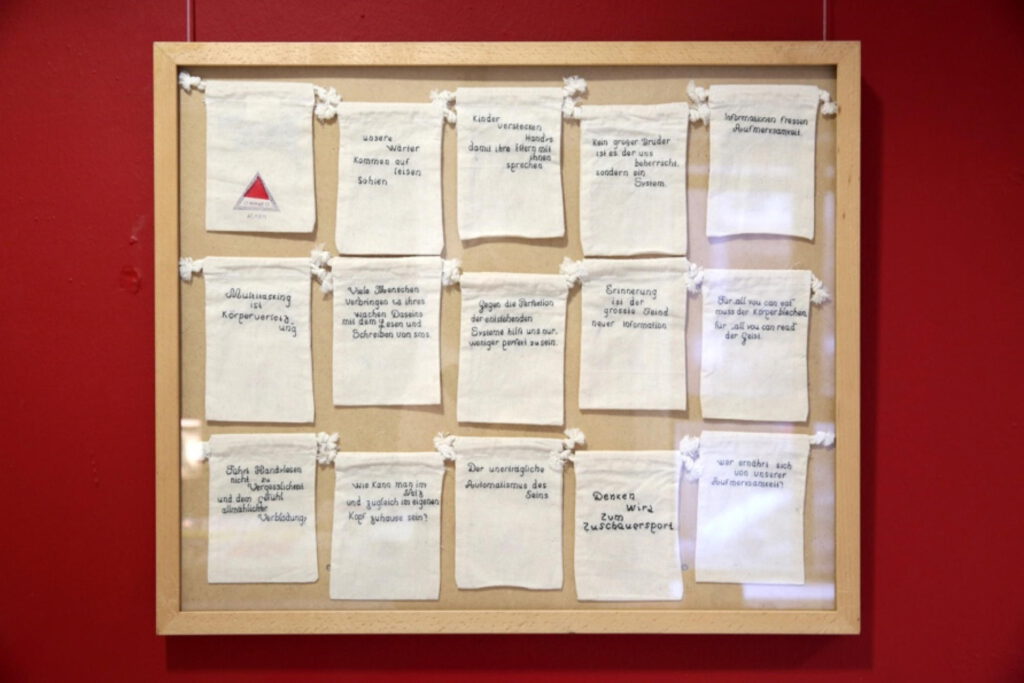 unsere
Wärter
Kommen auf
leisen
Sohlen
Kinder
verstecken
Handys
damit ihre Eltern mit
ihnen
sprechen
Kein großer Bruder
ist es der uns
beherrscht
sondern ein
System.
Informationen fressen
Aufmerksamkeit
Multitasking
ist
Körperverletz
ung
Viele Menschen
verbringen 1/3 ihres
wachen Daseins
mit dem Lesen und
Schreiben von sms.
Gegen die Perfektion
der entstehenden
Systeme hilft uns nur,
weniger perfekt zu sein.
Erinnerung
ist der
grösste Feind
neuer Information
Für „all you can eat"
muss der Körper blechen,
für „all you can read"
der Geist.
Führt Handylesen
nicht zu
Vergesslichkeit
und dem Gefühl
allmählicher
Verblödung?
Wie kann man im
Netz
und zugleich im eigenen
Kopf zuhause sein?
Der unerträgliche
Automatismus des
Seins
Denken
Wird
zum
Zuschauersport
Wer ernährt sich
von unserer
Aufmerksamkeit?